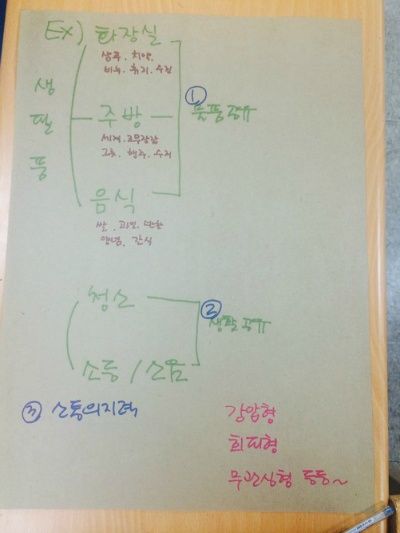 Ex) 화장실
치약,
비누, 휴지, 수건
생
필
품
①
주방
물품공유
세제, 고무장갑
그릇, 행주, 수저
음식
쌀, 라면
양념, 간식
청소
②
생활공유
소등 / 소음
③ 소통의지력
강압형
회피형
무관심형 등등~